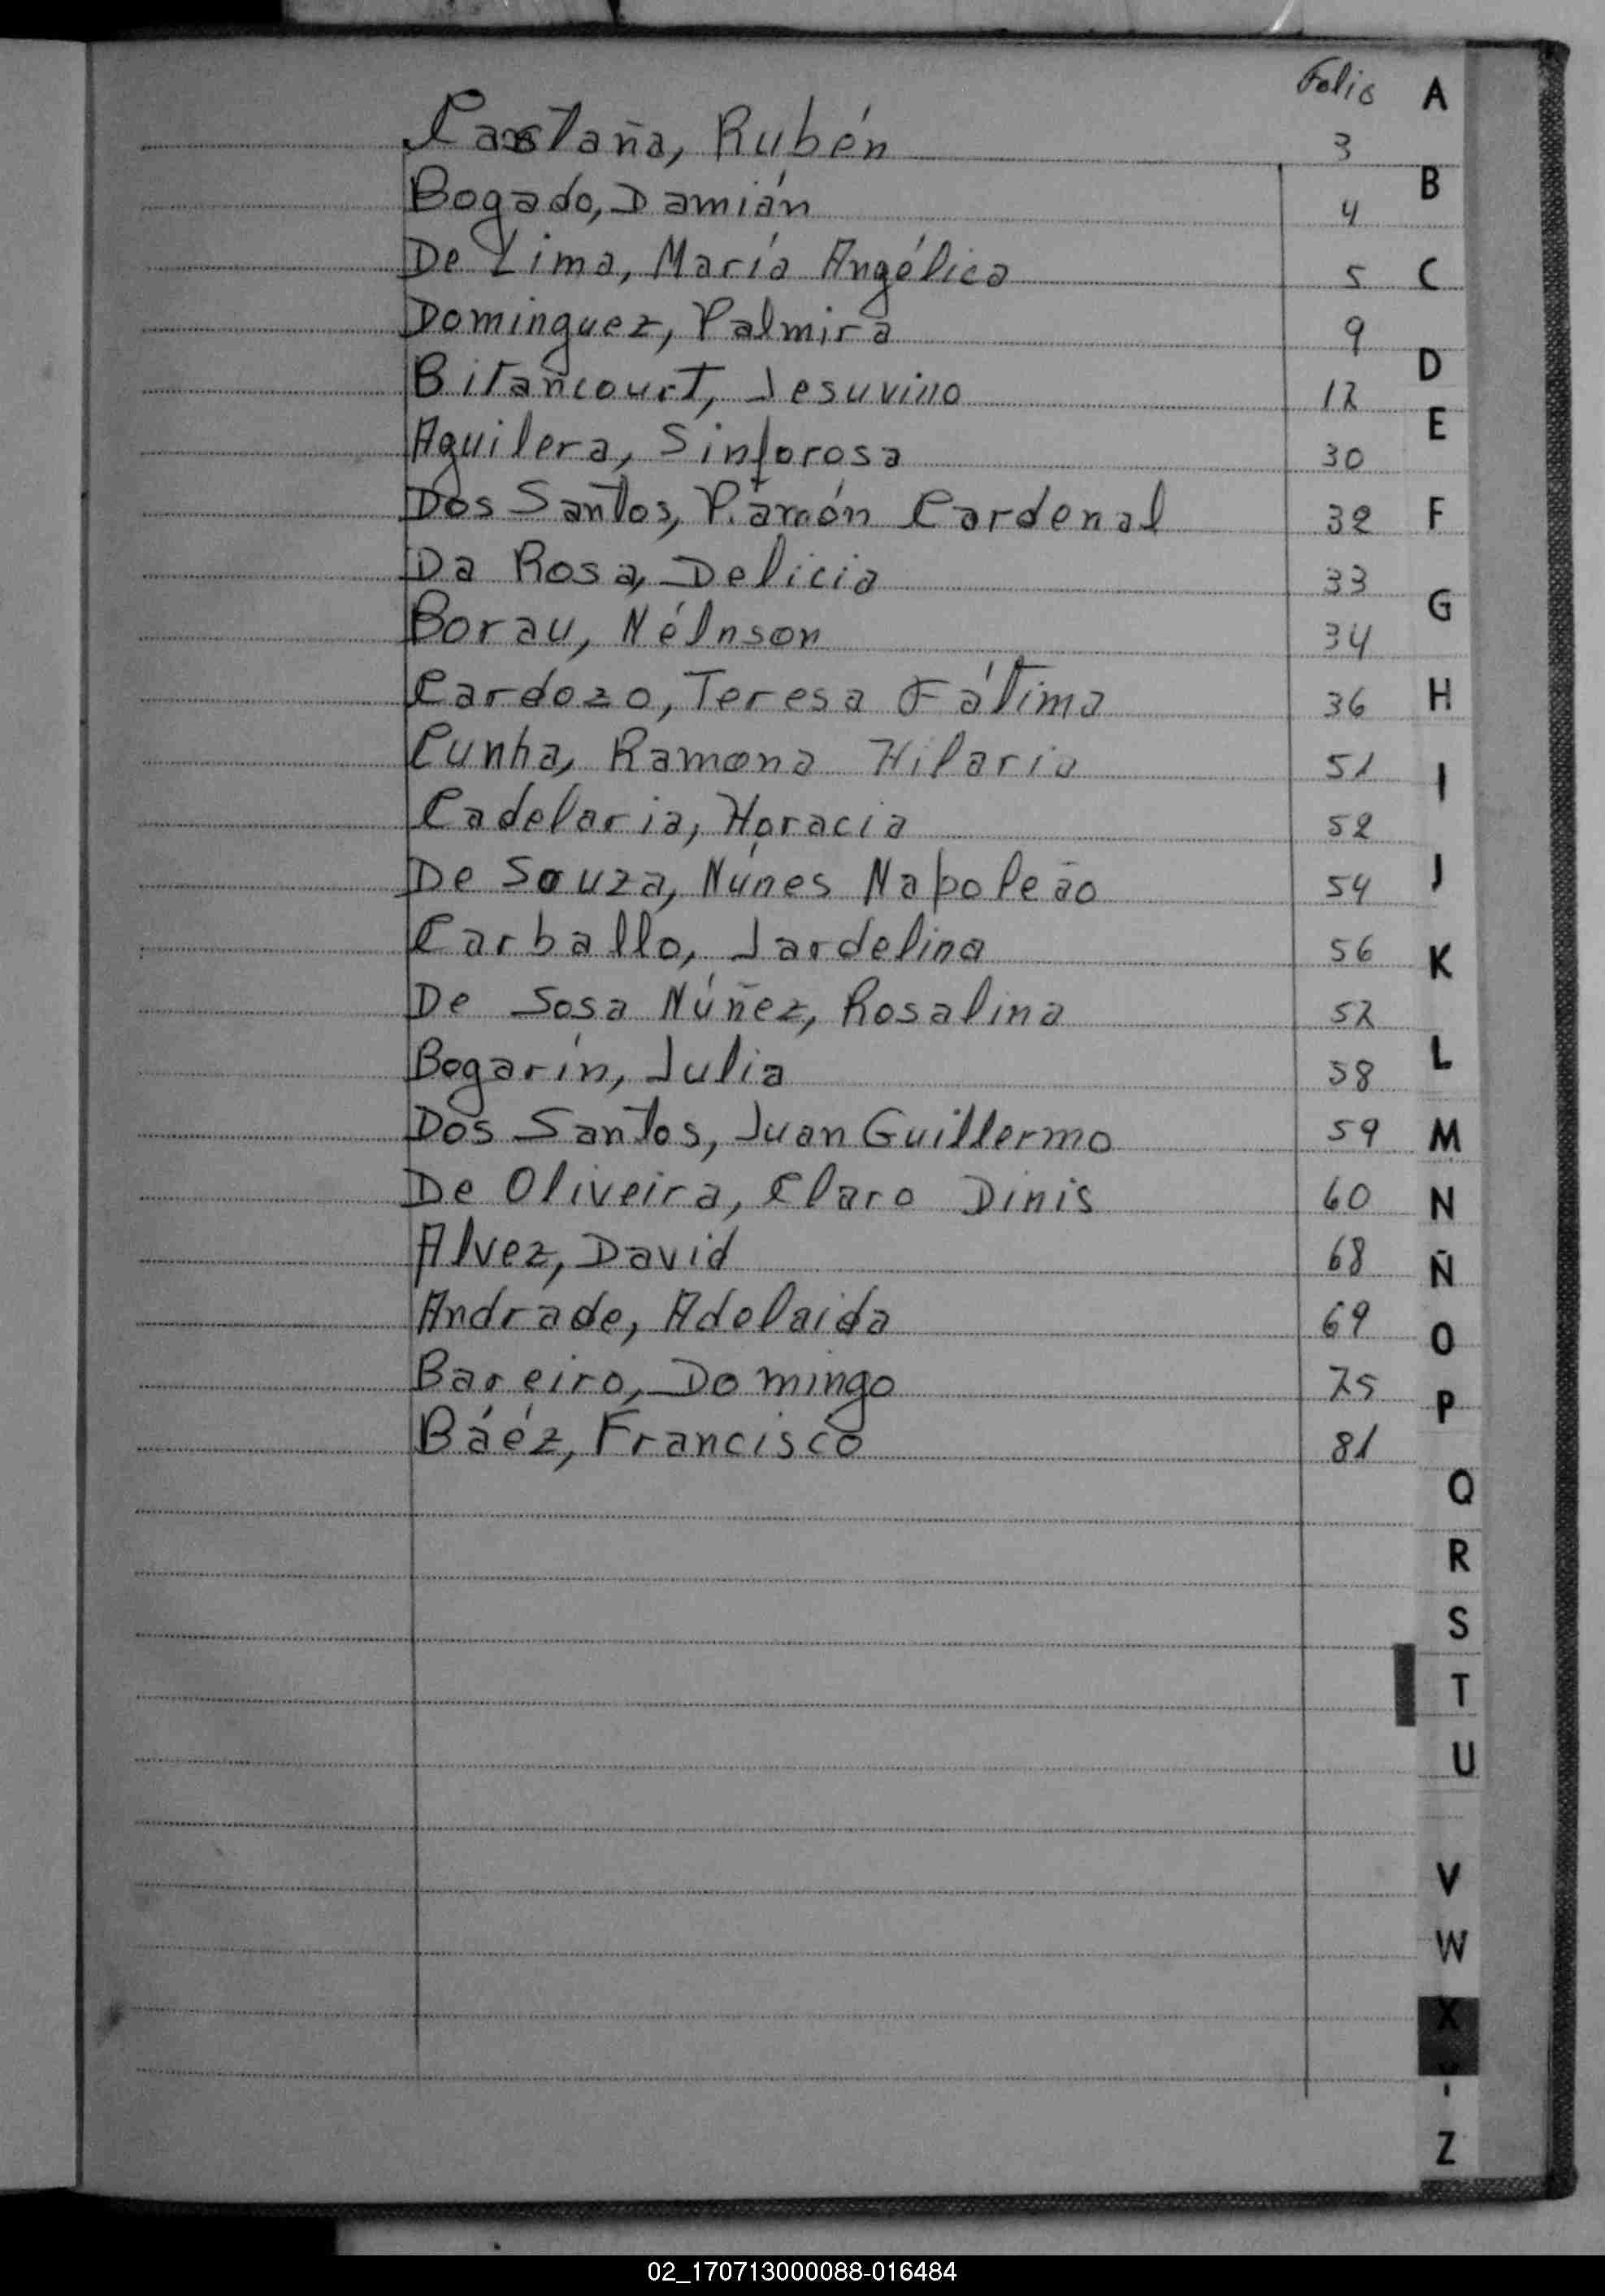 Folio
Castaña, Rubén 3
Bogado, Damián 4
De Lima, María Angélica 5
Dominguez, Palmira 9
Bitancourt, Jesuvino 12
Aguilera, Sinforosa 30
Dos Santos, Ramón Cardenal 32
Da Rosa, Delicia 33
Borau, Nélnson 34
Cardozo, Teresa Fátima 36
Cunha, Ramona Hilaria 51
Cadelaria, Horacia 52
De Souza, Núnes Napoleão 54
Carballo, Jardelina 56
De Sosa Núñez, Rosalina 57
Bogarín, Julia 58
Dos Santos, Juan Guillermo 59
De Oliveira, Claro Dinis 60
Alvez, David 68
Andrade, Adelaida 69
Bareiro, Domingo 75
Báéz, Francisco 81
A
B
C
D
E
F
G
H
I
J
K
L
M
N
Ñ
O
P
Q
R
S
T
U
V
W
X
Y
Z
02_170713000088-016484